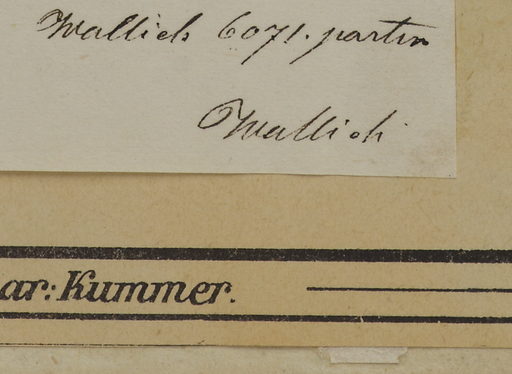 Wallich 6071. partim
Wallich
ar: Kummer.